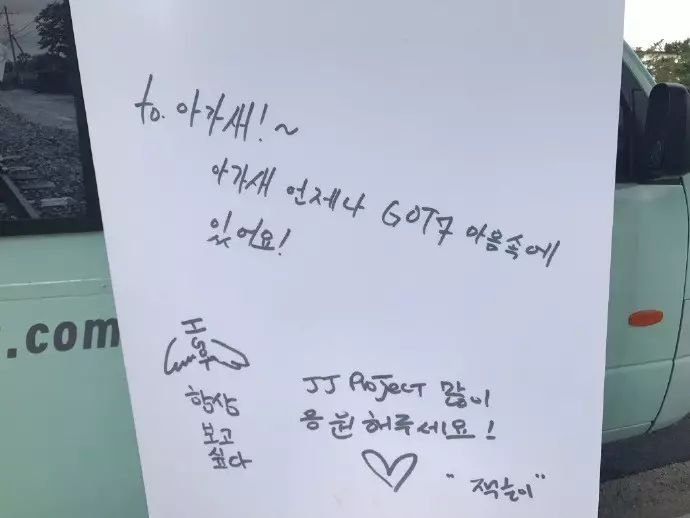 to. 아가새!~
아가새 언제나 GOT7 마음속에
있어요!
.com
항상
보고
싶다
JJ Project 많이
응원해주세요!
"잭슨이"